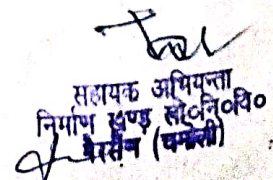 सहायक अभियन्ता
निर्माण खण्ड लो०नि०वि०
गैरसैंण (चमोली)